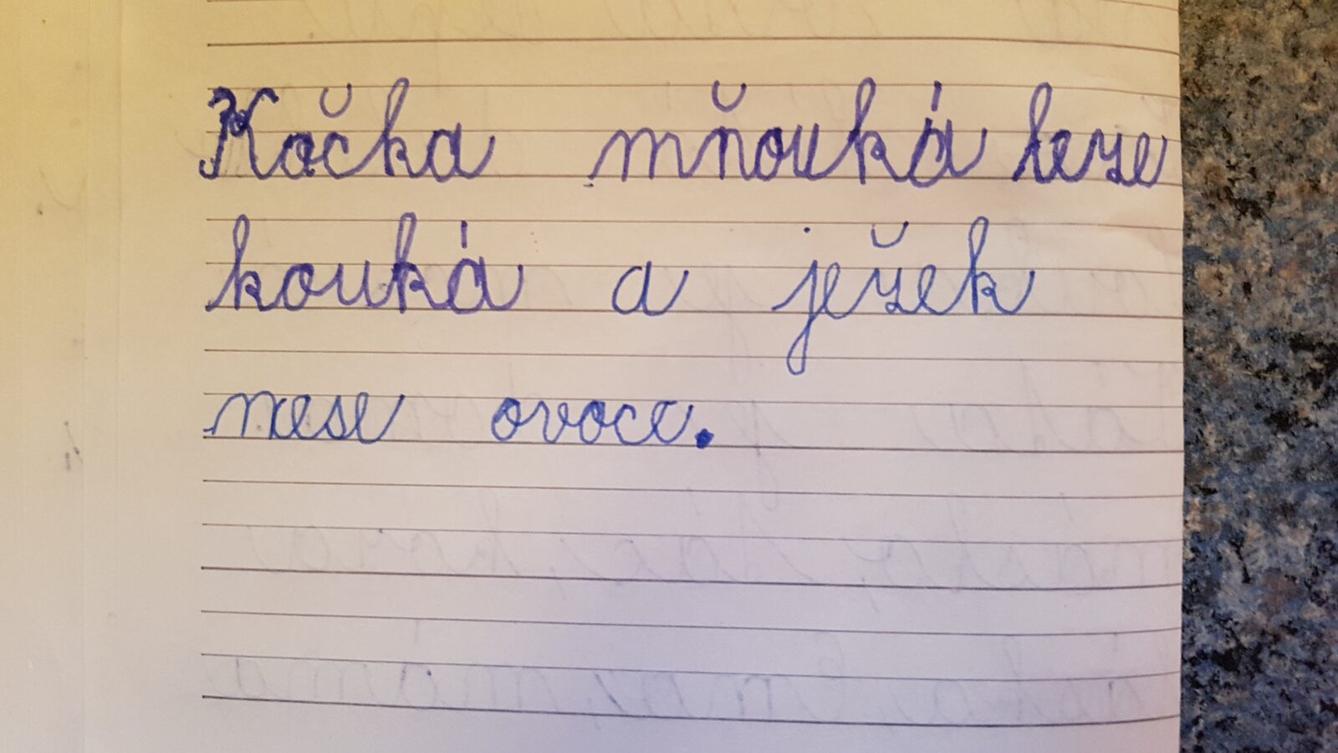 Kočka mňouká leze
kouká a ježek
nese ovoce.